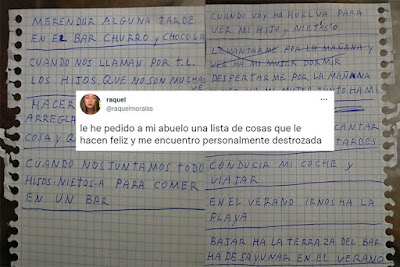 MERENDAR ALGUNA TARDE
EN EL BAR CHURRO y CHOCOLA
CUANDO NOS LLAMAN POR T.L.
LOS HIJOS, QUE NO SON MUCHAS
HACER
ARREGLA
COSA y
CUANDO NOS JUNTAMOS TODO
HIJOS-NIETOS-A PARA COMER
EN UN BAR
raquel
@raquelmoralss
le he pedido a mi abuelo una lista de cosas que le
hacen feliz y me encuentro personalmente destrozada
CUANDO VOY HA HUELVA PARA
VER MI HIJO y NIETOS
LEVANTARME POR LA MAÑANA y
VER HA MI MUJER DORMIR
DESPERTARME POR LA MAÑANA
MUJER JUNTO HA MI
CANTAR
TARDES
CONDUCIR MI COCHE y
VIAJAR
EN EL VERANO IRNOS HA LA
PLAYA
BAJAR HA LA TERRAZA DEL BAR
HA DESAYUNAR EN EL VERANO